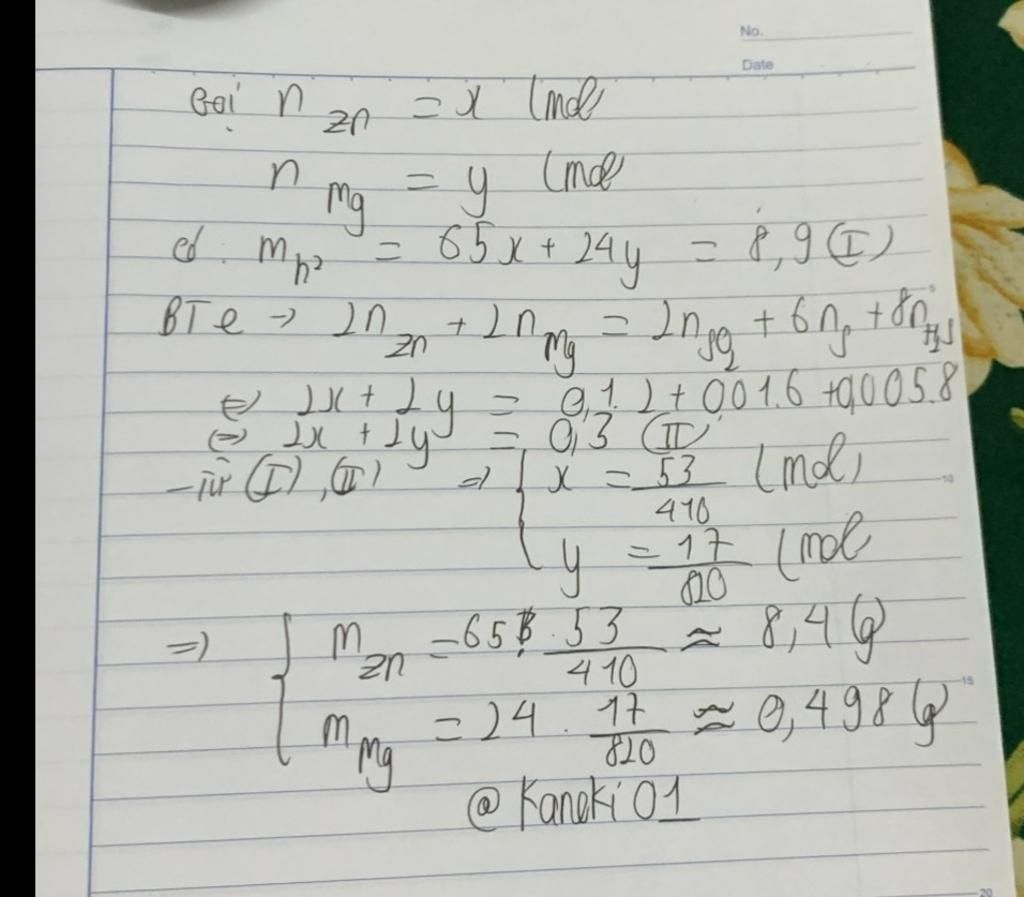 No.
Date
Gọi n Zn = x (mol
n Mg = y (mol
có : m h² = 65x + 24y = 8,9 (I)
BTe → 2n Zn + 2n Mg = 2n SO2 + 6n S + 8n H2S
⇔ 2x + 2y = 0,1.2 + 0,01.6 + 0,005.8
⇔ 2x + 2y = 0,3 (II)
- từ (I), (II) ⇒ { x = 53/410 (mol)
y = 17/820 (mol
⇒ { m Zn = 65 . 53/410 ≈ 8,4 (g)
m Mg = 24 . 17/820 ≈ 0,498 (g)
@ Kaneki 01
10
15
20